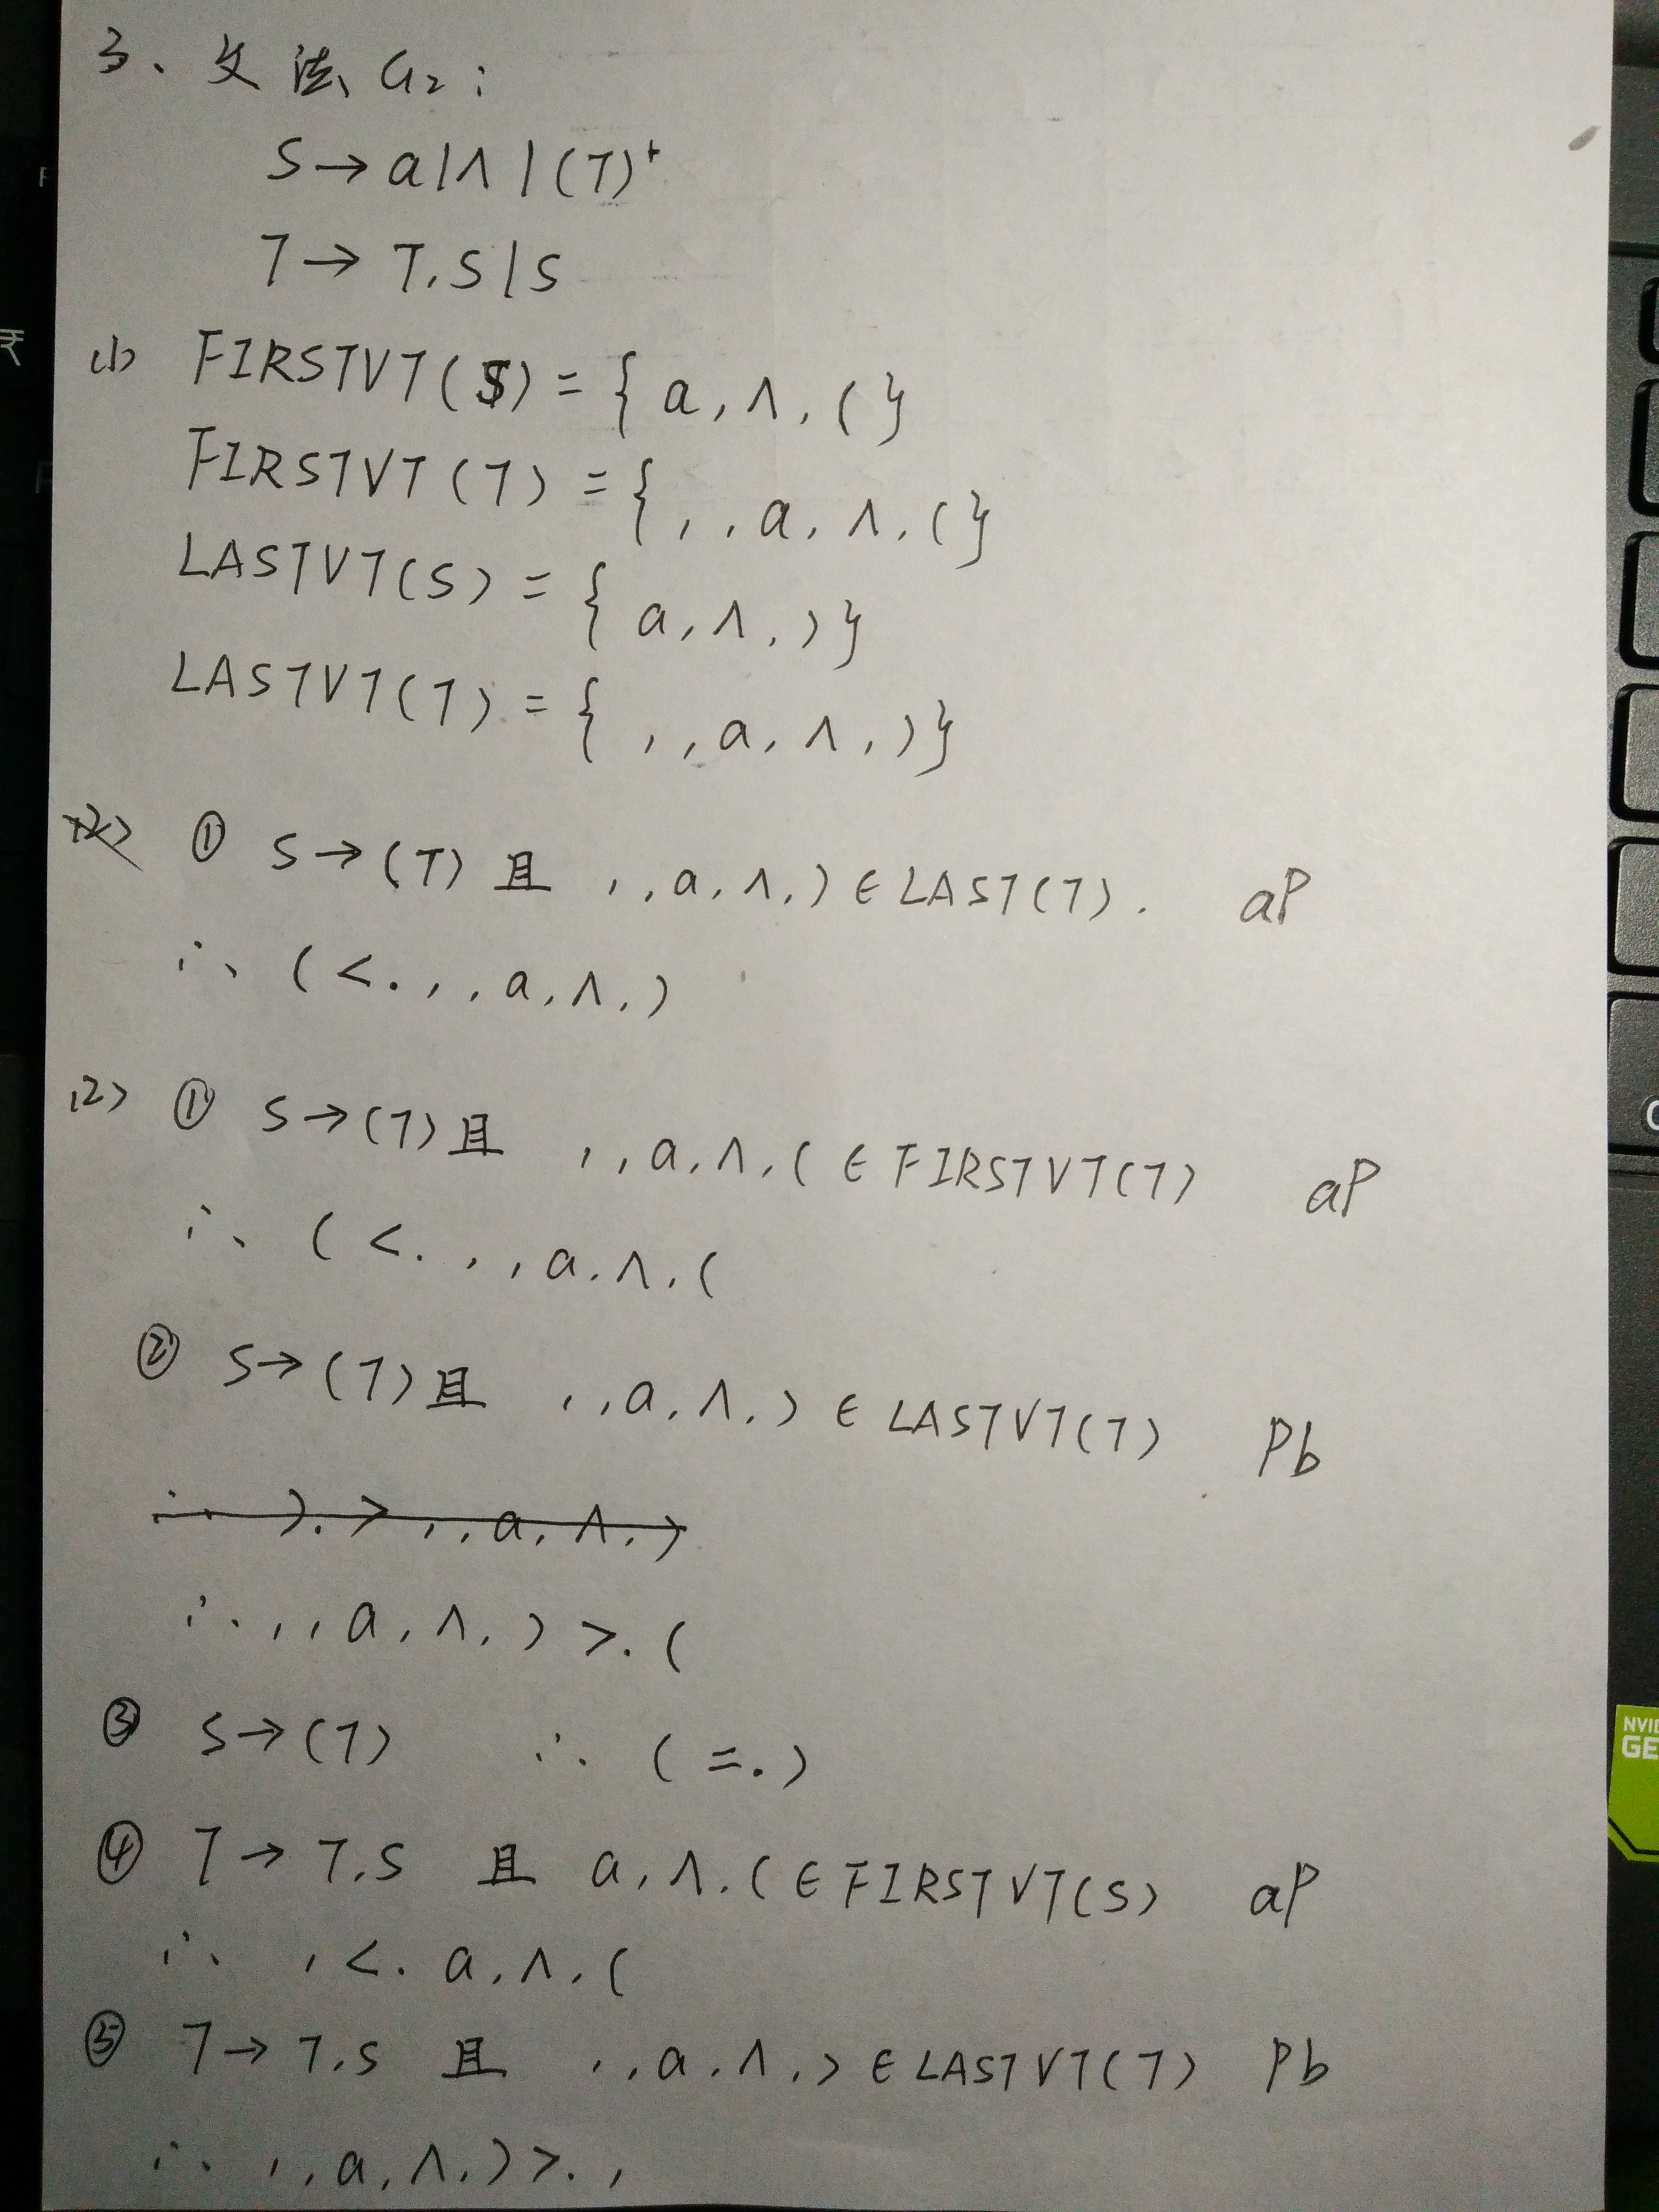 3、文法G₂:
S→a|∧|(T)
T→T,S|S
(1) FIRSTVT(S)={a,∧,(}
FIRSTVT(T)={,,a,∧,(}
LASTVT(S)={a,∧,)}
LASTVT(T)={,,a,∧,)}
(2) ① S→(T)且 ,,a,∧,)∈LAST(T). aP
∴ (<.,,a,∧,)
(2) ① S→(T)且 ,,a,∧,(∈FIRSTVT(T) aP
∴ (<.,,a,∧,(
② S→(T)且 ,,a,∧,)∈LASTVT(T) Pb
∴ ).>,,a,∧,)
∴ ,,a,∧,)>.(
③ S→(T) ∴ (=.)
④ T→T,S 且 a,∧,(∈FIRSTVT(S) aP
∴ ,<.a,∧,(
⑤ T→T,S 且 ,,a,∧,)∈LASTVT(T) Pb
∴ ,,a,∧,)>.,
NVI
GE